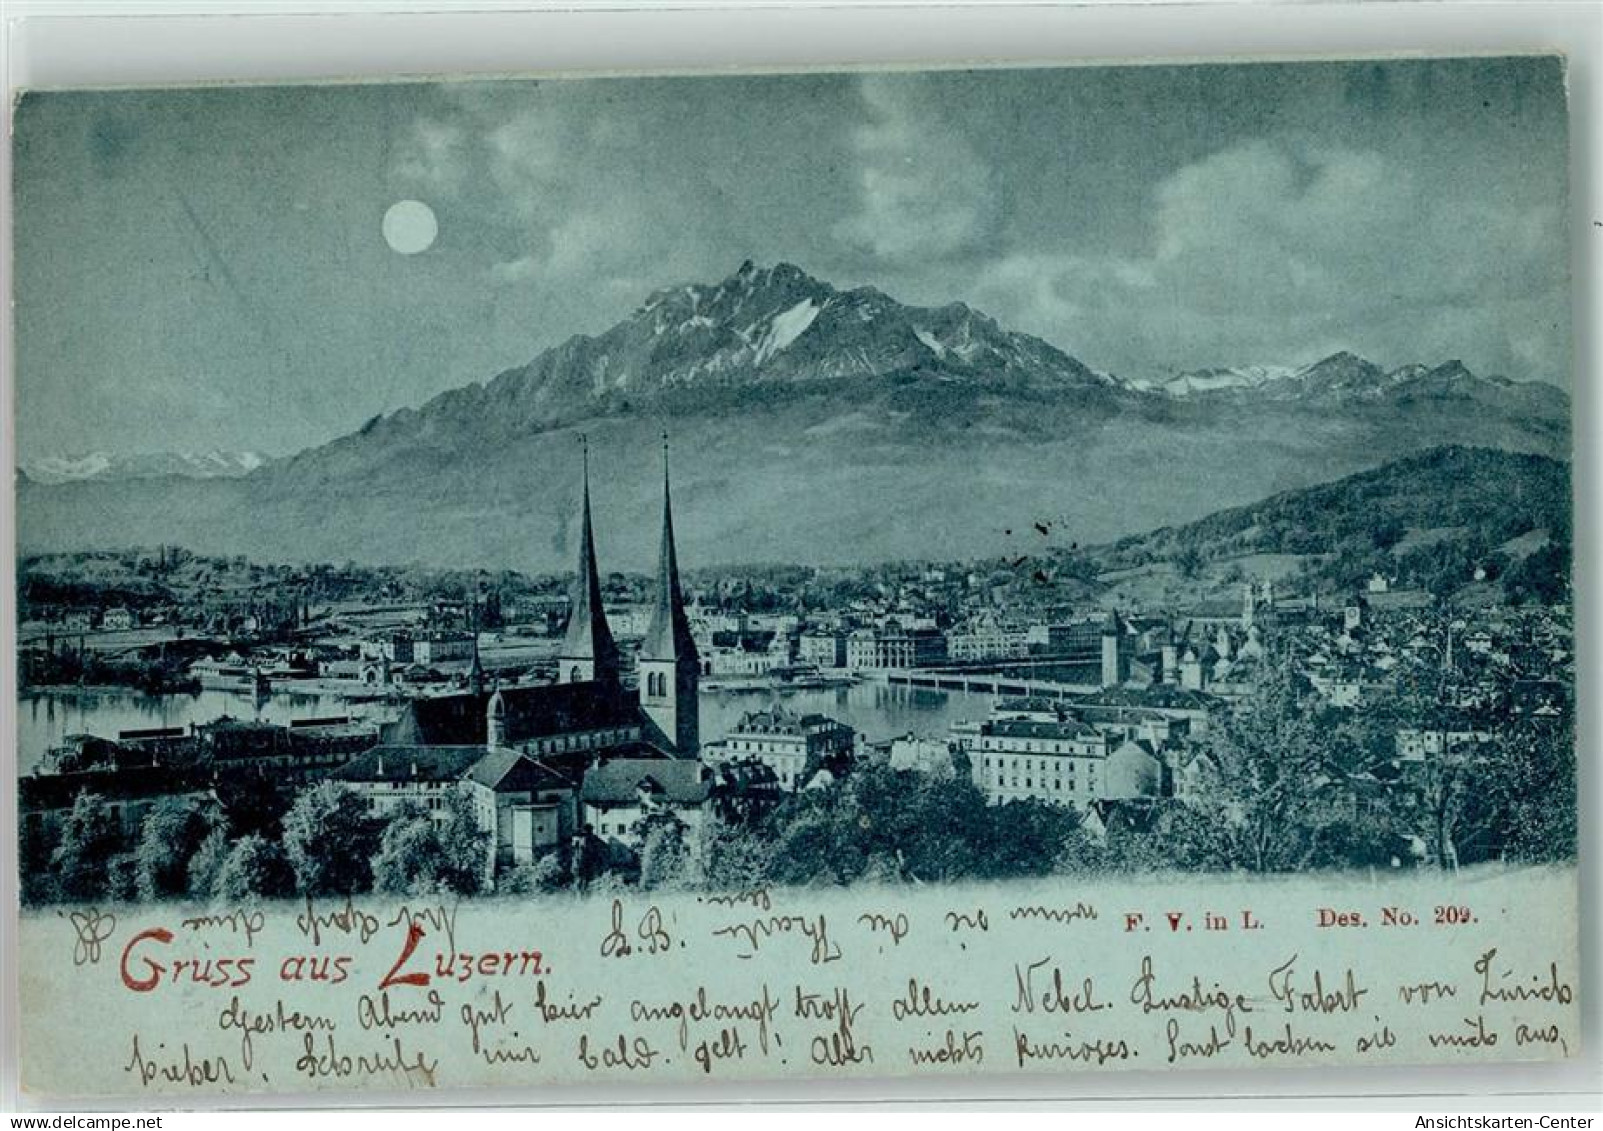 L. B.!
F. V. in L. Des. No. 209.
Gruss aus Luzern.
Gestern Abend gut hier angelangt trotz allem Nebel. Lustige Fahrt von Zürich
hieher. Schreibe mir bald. gelt! Aber nichts kurioses. Sonst lachen sie mich aus,
wenn sie die Karte
lesen.
Mit Gruss deine
Ansichtskarten-Center